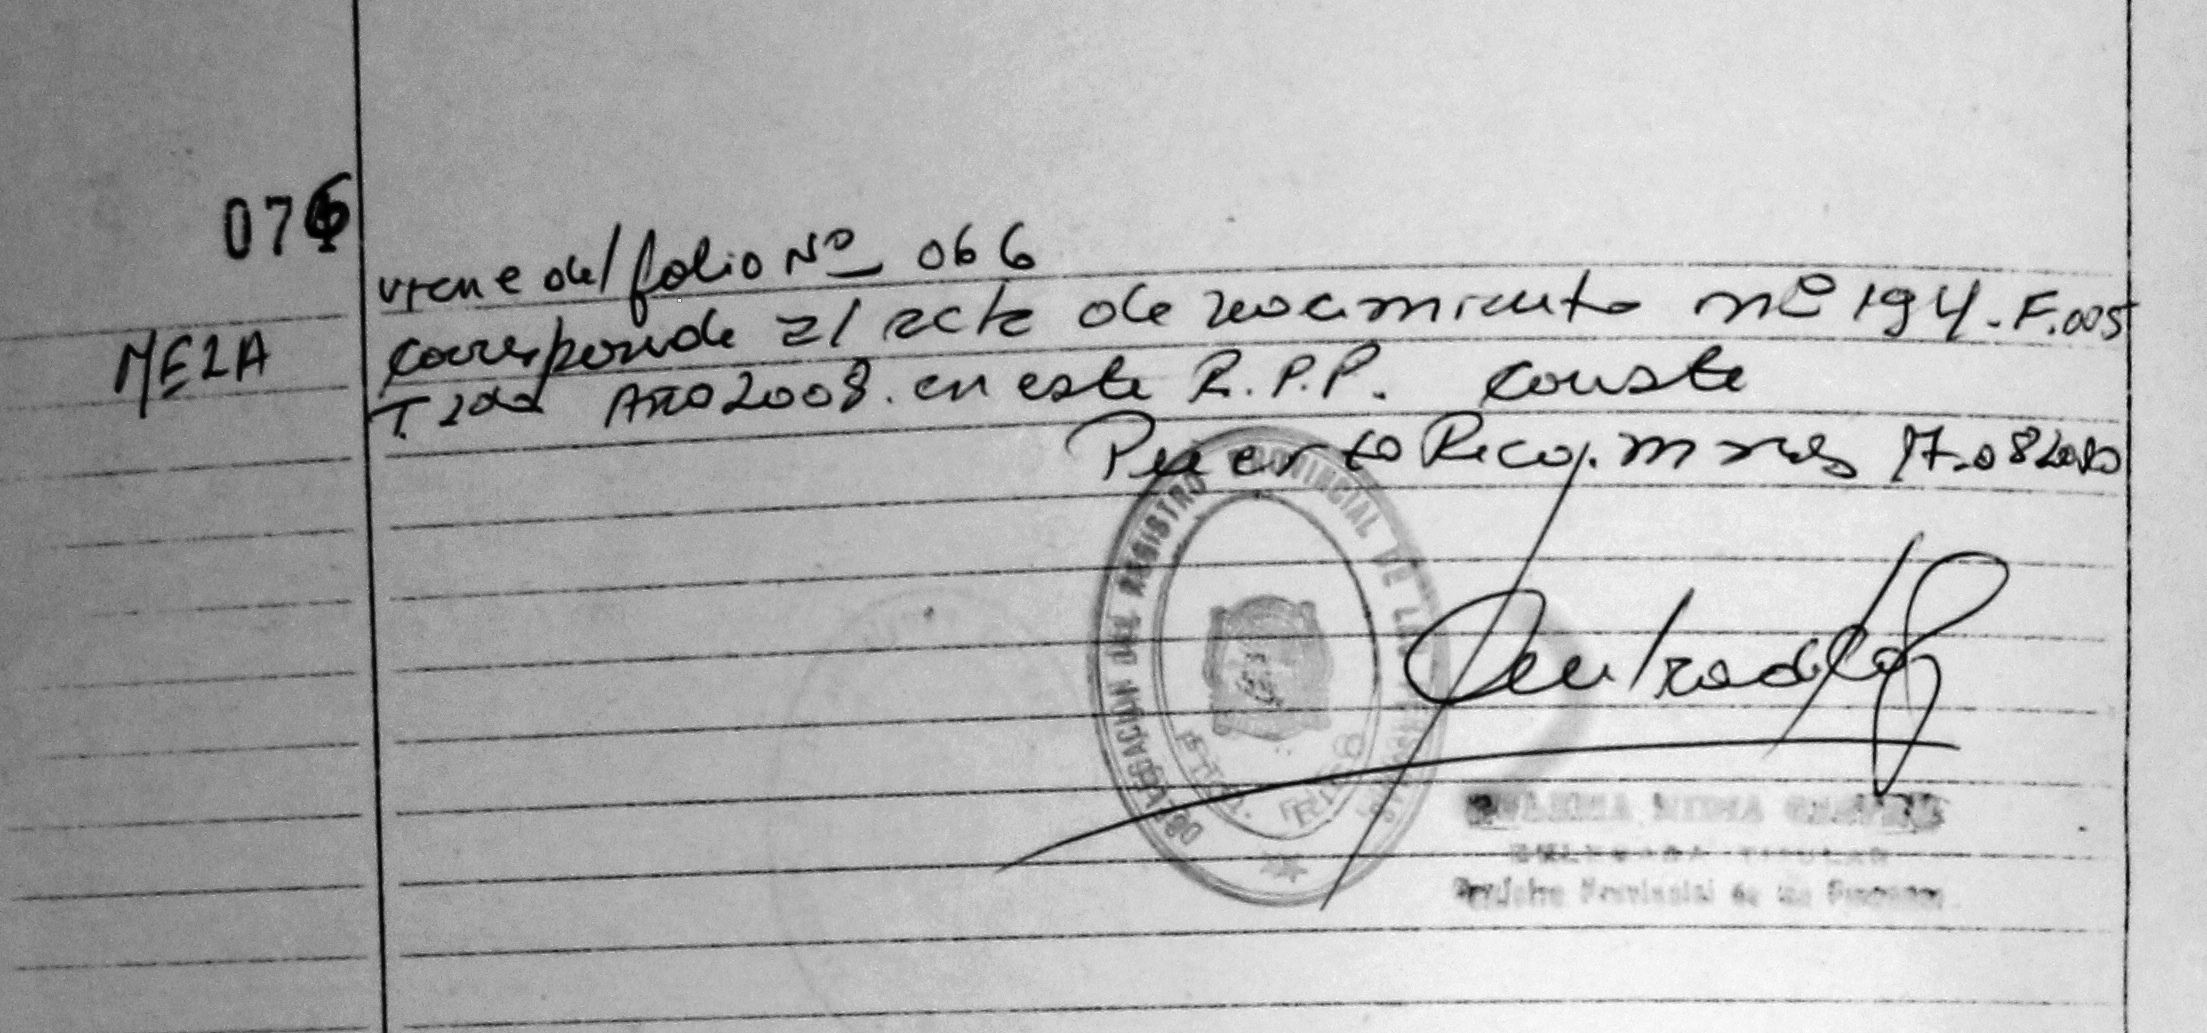 076
viene del folio Nº 066
MEZA
corresponde al acta de nacimiento nº 194. F.005
T. 2do AÑO 2008. en este R.P.P. conste
Puerto Rico, mnes 17-08
DELEGACION DEL REGISTRO PROVINCIAL DE LAS PERSONAS
PTO. RICO
Registro Provincial de las Personas